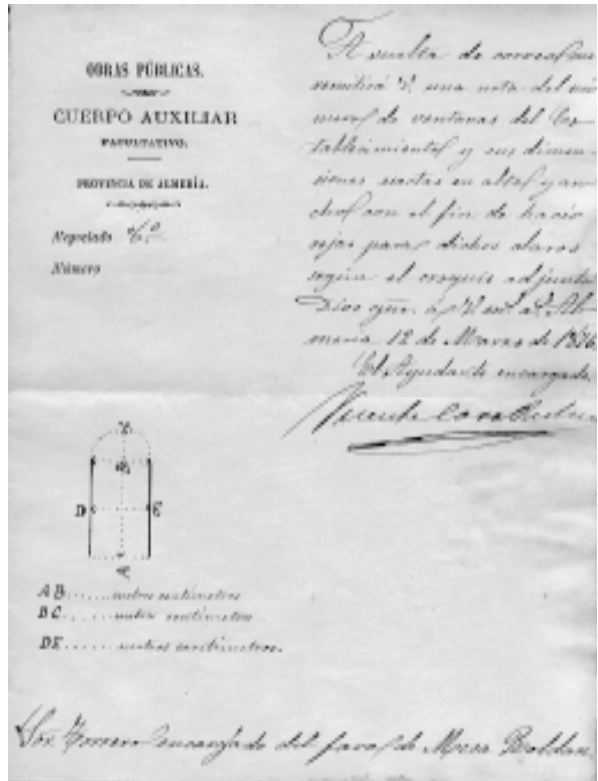 OBRAS PÚBLICAS.
CUERPO AUXILIAR
FACULTATIVO.
PROVINCIA DE ALMERÍA.
Negociado 6.º
Número
A vuelta de correo me
remitirá V. una nota del nú
mero de ventanas del Es-
tablecimiento y sus dimen-
siones en alto y an-
cho con el fin de hacer
para dichos claros
según el croquis adjunto
Dios gue. a V. m. a. Al-
mería 12 de Marzo de
El Ayudante encargado
Vicente
C
B
D E
A
AB...... metros centímetros
BC...... metros centímetros
DE...... metros centímetros.
Sor. Torrero encargado del faro de Mesa Roldan.